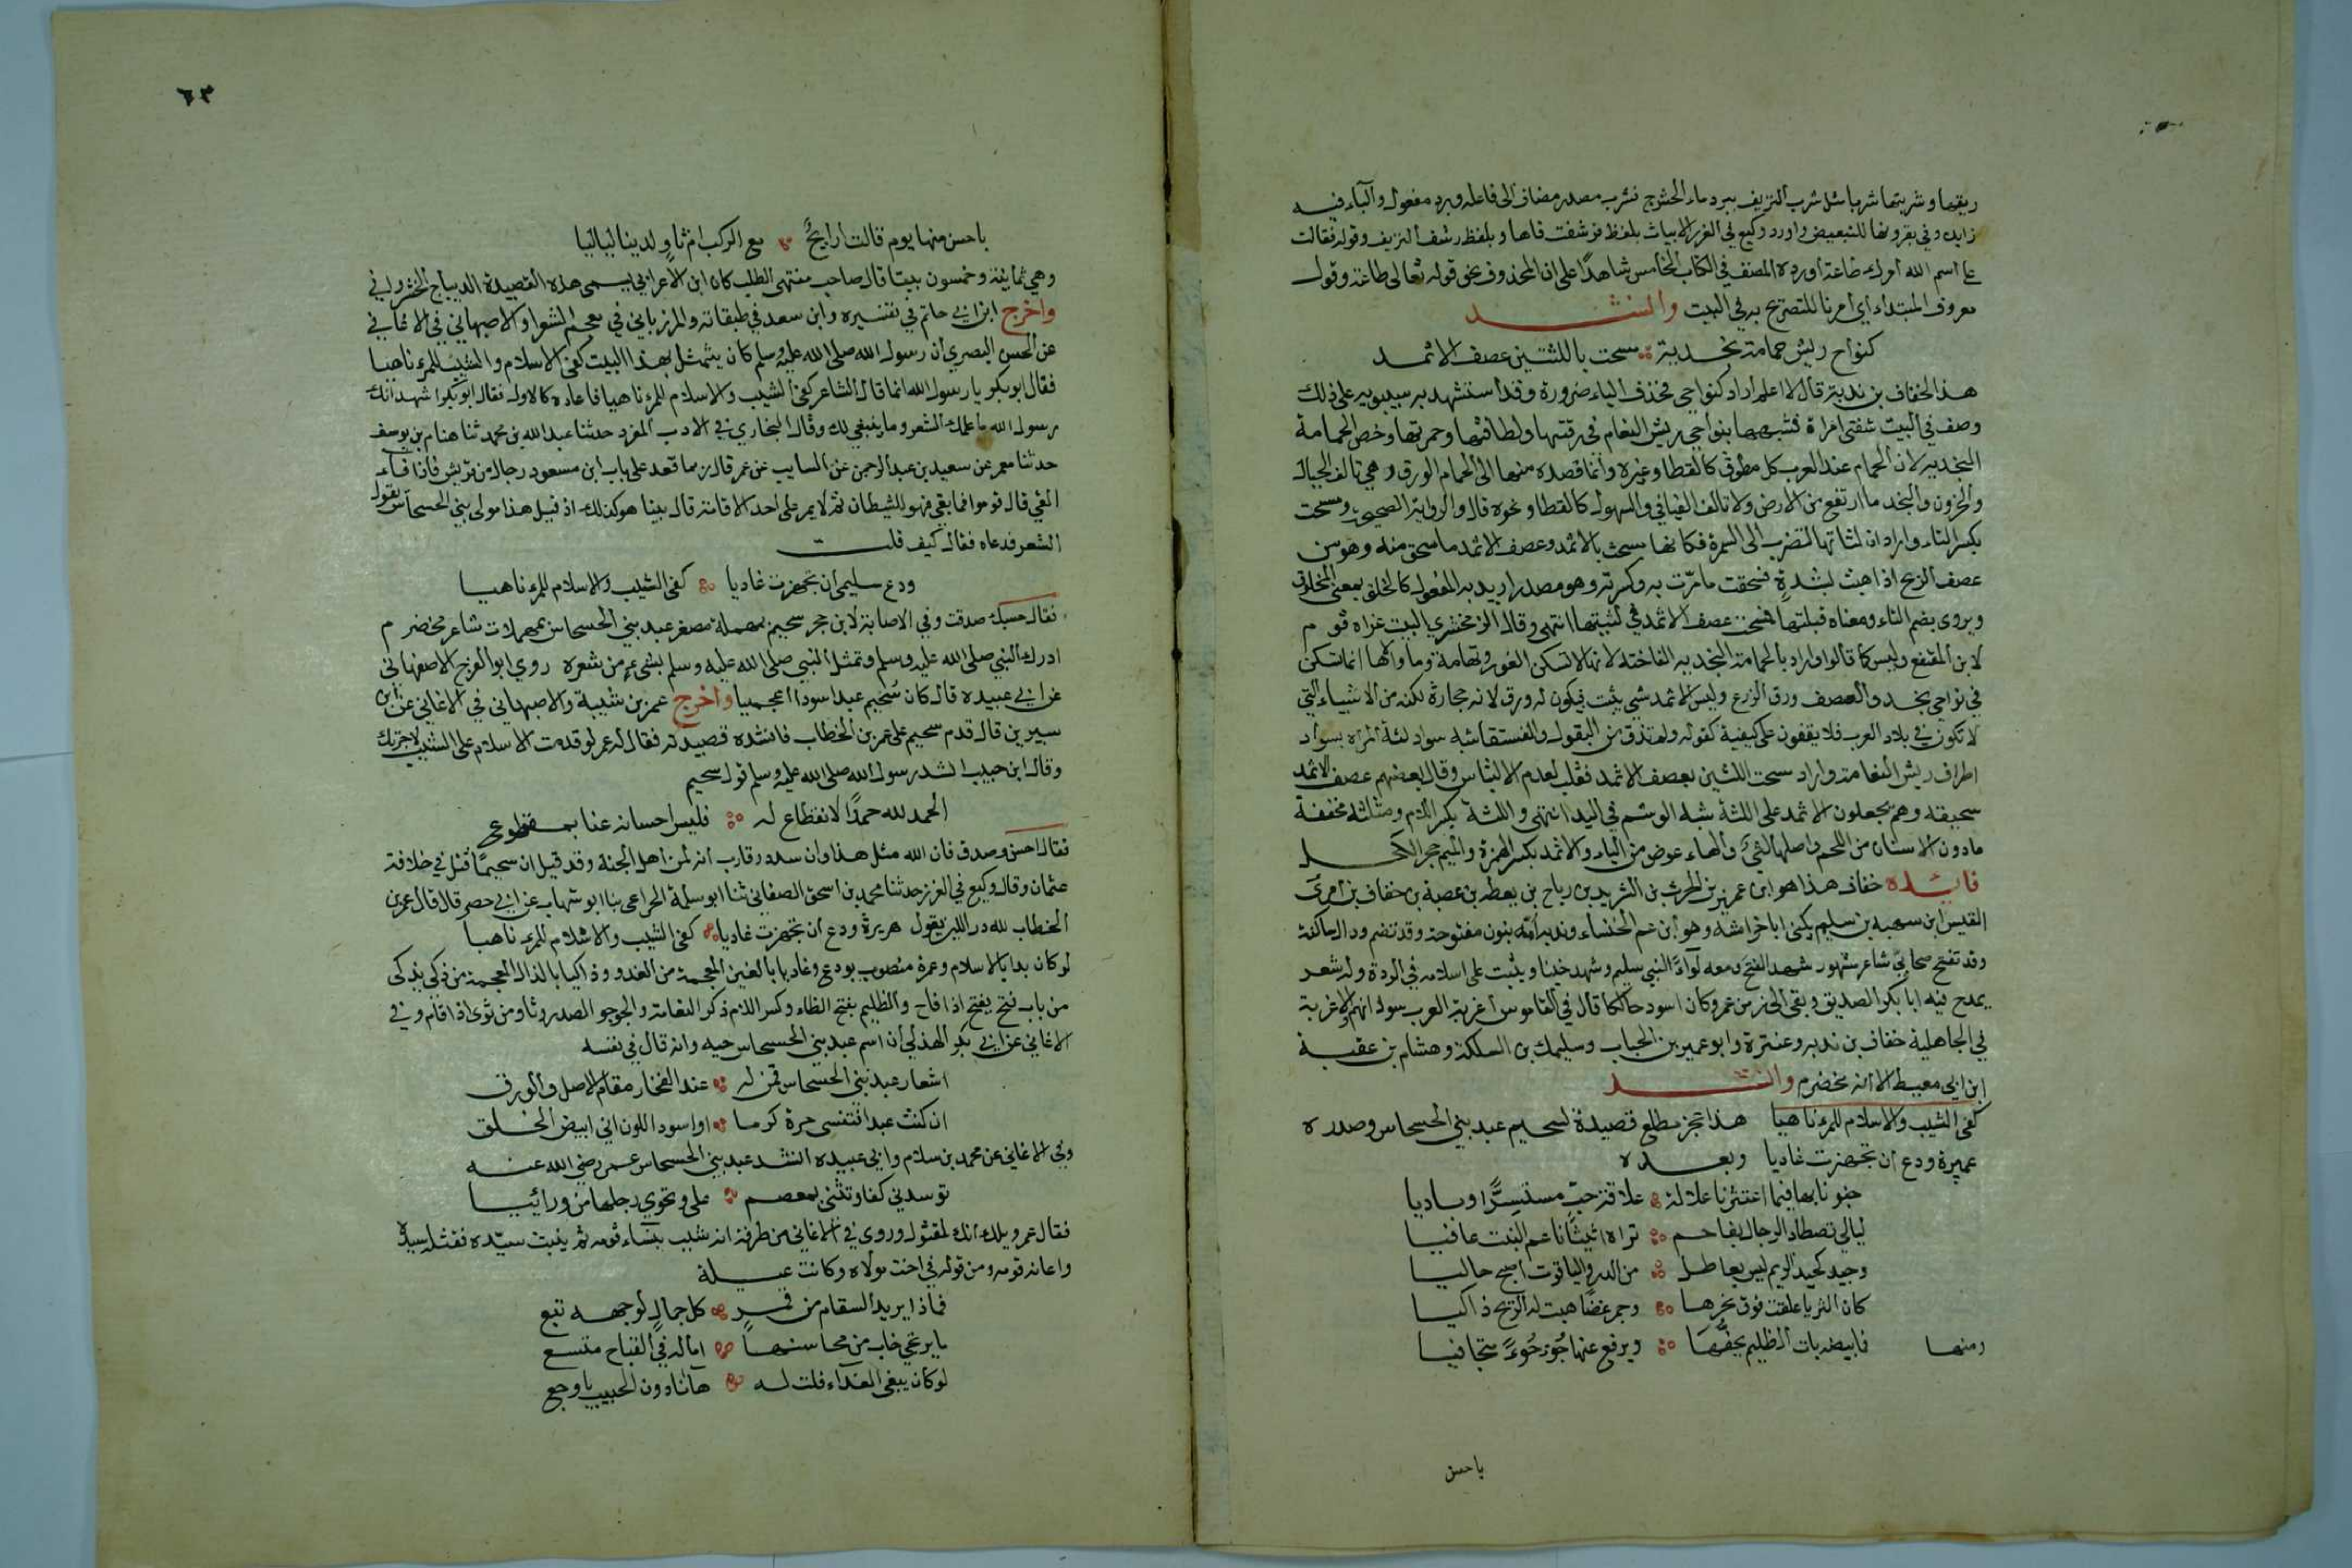 ريقها وشربتها شربا مثل شرب النزيف ببرد ماء الحشرج فشرب مصدر مضاف الى فاعله وبرد مفعول والباء فيه
زايدة وفي بقرونها للتبعيض واورد وكيع في الغرر الابيات بلفظ فرشفت فاها وبلفظ رشف النزيف وقوله فقالت
على اسم الله امرك طاعة اورده المصنف في الكتاب الخامس شاهدا على ان المحذوف في نحو قوله تعالى طاعة وقول
معروف المبتدا اي امرنا للتصريح به في البيت وانشد
كنواح ريش حمامة نجدية ومسحت باللثتين عصف الاثمد
هذا لخفاف بن ندبة قال لا اعلم اراد كنواحي فحذف الياء ضرورة وقد استشهد به سيبويه على ذلك
وصف في البيت شفتي امراة فشبههما بنواحي ريش النعام في رقتها ولطافتها وحمرتها وخص الحمامة
النجدية لان الحمام عند العرب كل مطوق كالقطا وغيره وانما قصده منها الى الحمام الورق وهي تالف الجبال
والحزون والنجد ما ارتفع من الارض ولا تالف الفيافي والسهول كالقطا ونحوه قال والرواية الصحيحة ومسحت
بكسر التاء واراد ان لثاتها تضرب الى السمرة فكانها مسحت بالاثمد وعصف الاثمد ما سحق منه وهو من
عصف الريح اذا هبت بشدة فسحقت ما مرت به وكسرته وهو مصدر اريد به المفعول كالخلق بمعنى المخلوق
ويروى بضم التاء ومعناه قبلتها فمسحت عصف الاثمد في لثتيها انتهى وقال الزمخشري البيت عزاه قوم
لابن المقفع وليس كما قالوا واراد بالحمامة النجدية الفاختة لانها لا تسكن الغور وتهامة وما والاها انما تسكن
في نواحي نجد والعصف ورق الزرع وليس الاثمد شي ينبت فيكون له ورق لانه حجارة لكنه من الاشياء التي
لا تكون في بلاد العرب فلا يقفون على كيفية كقوله ولم تذق من البقول والفستقا شبه سواد لثة المراة بسواد
اطراف ريش النعامة واراد مسحت اللثتين بعصف الاثمد فقلب لعدم الالتباس وقال بعضهم عصف الاثمد
سحيقه وهم يجعلون الاثمد على اللثة شبه الوشم في اليد انتهى واللثة بكسر اللام ومثلثة مخففة
ما دون الاسنان من اللحم واصلها لثي والهاء عوض من الياء والاثمد بكسر الهمزة والميم حجر الكحل
فايدة خفاف هذا هو ابن عمير بن الحرث بن الشريد بن رباح بن يعظه بن عصبة بن خفاف بن امرئ
القيس ابن سهبه بن سليم يكنى ابا خراشه وهو ابن عم الخنساء وندبة امه بنون مفتوحة وقد تضم ودال ساكنة
وقد تفتح صحابي شاعر مشهور شهد الفتح ومعه لواء بني سليم وشهد حنينا ويثبت على اسلامه في الردة وله شعر
يمدح فيه ابا بكر الصديق وبقي الى زمن عمر وكان اسود حالكا قال في القاموس اغربة العرب سودانهم والاغربة
في الجاهلية خفاف بن ندبه وعنترة وابو عمير بن الحباب وسليك بن السلكة وهشام بن عقبة
ابن ابي معيط الا انه مخضرم وانشد
كفى الشيب والاسلام للمرء ناهيا هذا عجز مطلع قصيدة لسحيم عبد بني الحسحاس وصدره
عميرة ودع ان تجهزت غاديا وبعده
جنونا بها فيما اعتشرنا علالة علاقة حب مستسرا وباديا
ليالي تصطاد الرجال بفاحم تراه اثيثا ناعم النبت عافيا
وجيد كجيد الريم ليس بعاطل من الدر والياقوت اصبح حاليا
كان الثريا علقت فوق نحرها وجمر غضا هبت له الريح ذاكيا
ومنها فما بيضة بات الظليم يحفها ويرفع عنها جؤجؤا متجافيا
باحسن
٦٣
باحسن منها يوم قالت ارايح مع الركب ام ثاو لدينا لياليا
وهي ثمانية وخمسون بيتا قال صاحب منتهى الطلب كان ابن الاعرابي يسمى هذه القصيدة الديباج الخسرواني
واخرج ابن ابي حاتم في تفسيره وابن سعد في طبقاته والمرزباني في معجم الشعرا والاصبهاني في الاغاني
عن الحسن البصري ان رسول الله صلى الله عليه وسلم كان يتمثل بهذا البيت كفى الاسلام والشيب للمرء ناهيا
فقال ابو بكر يا رسول الله انما قال الشاعر كفى الشيب والاسلام للمرء ناهيا فاعاده كالاول فقال ابو بكر اشهد انك
رسول الله ما علمك الشعر وما ينبغي لك وقال البخاري في الادب المفرد حدثنا عبد الله بن محمد ثنا هشام بن يوسف
حدثنا معمر عن سعيد بن عبد الرحمن عن السايب عن عمر قال ربما قعد على باب ابن مسعود رجال من قريش فاذا فاء
الفي قال قوموا فما بقي فهو للشيطان ثم لا يمر على احد الا اقامه قال بينا هو كذلك اذ قيل هذا مولى بني الحسحاس يقول
الشعر فدعاه فقال كيف قلت
ودع سليمى ان تجهزت غاديا كفى الشيب والاسلام للمرء ناهيا
فقال حسبك صدقت وفي الاصابة لابن حجر سحيم بمهملة مصغر عبد بني الحسحاس بمهملات شاعر مخضرم
ادرك النبي صلى الله عليه وسلم وتمثل النبي صلى الله عليه وسلم بشيء من شعره روى ابو الفرج الاصفهاني
عن ابي عبيده قال كان سحيم عبدا اسودا اعجميا واخرج عمر بن شيبة والاصبهاني في الاغاني عن ابن
سيرين قال قدم سحيم على عمر بن الخطاب فانشده قصيدته فقال له عمر لو قدمت الاسلام على الشيب لاجزتك
وقال ابن حبيب انشد رسول الله صلى الله عليه وسلم قول سحيم
الحمد لله حمدا لا انقطاع له فليس احسانه عنا بمقطوع
فقال احسن وصدق فان الله مثل هذا وان سدد وقارب انه لمن اهل الجنة وقد قيل ان سحيما قتل في خلافة
عثمان وقال وكيع في الغرر حدثنا محمد بن اسحق الصفاني ثنا ابو سلمة الخزاعي ثنا ابو شهاب عن ابي حصر قال قال عمر بن
الخطاب لله در الذي يقول هريرة ودع ان تجهزت غاديا كفى الشيب والاسلام للمرء ناهيا
لو كان بدا بالاسلام وعمرة منصوب بودع وغاديا بالغين المعجمة من الغدو وذاكيا بالذال المعجمة من ذكى يذكى
من باب فتح يفتح اذا فاح والظليم بفتح الظاء وكسر اللام ذكر النعامة والجوجو الصدر وثاو من ثوى اذا اقام وفي
الاغاني عن ابي بكر الهذلي ان اسم عبد بني الحسحاس حيه وانه قال في نفسه
اشعار عبد بني الحسحاس قمن له عند الفخار مقام الاصل والورق
ان كنت عبدا فنفسي حرة كرما او اسود اللون اني ابيض الخلق
وفي الاغاني عن محمد بن سلام وابي عبيده انشد عبد بني الحسحاس عمر رضي الله عنه
توسدني كفا وتثني بمعصم علي وتحوي رجلها من ورائيا
فقال عمر ويلك انك لمقتول وروى في الاغاني من طرفة انه شبب بنساء قومه ثم ببنت سيده فقتله سيده
واعانه قومه ومن قوله في اخت مولاه وكانت عليلة
ماذا يريد السقام من قمر كل جمال لوجهه تبع
ما يرتجي خاب من محاسنها اماله في القباح متسع
لو كان يبغي الفداء قلت له ها انا دون الحبيب يا وجع